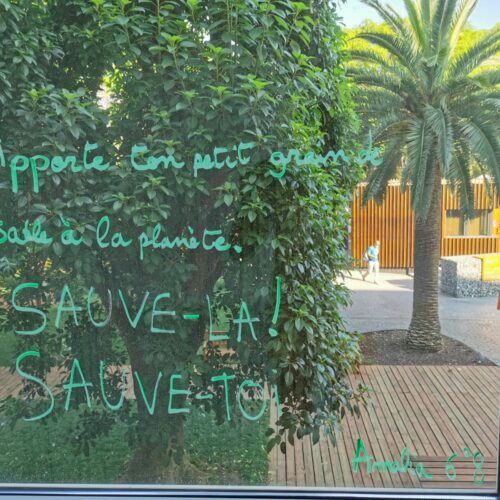 Apporte ton petit grain de
sable à la planète.
SAUVE-LA!
SAUVE-TOI!
Annaba 6°8